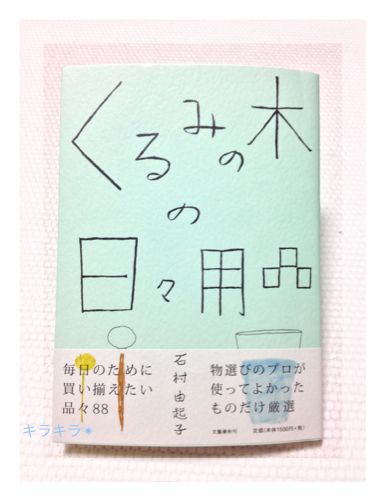 くるみの木
の
日々用品
石村由起子
物選びのプロが
使ってよかった
ものだけ厳選
毎日のために
買い揃えたい
品々88
文藝春秋刊
定価(本体1500円+税)
キラキラ*